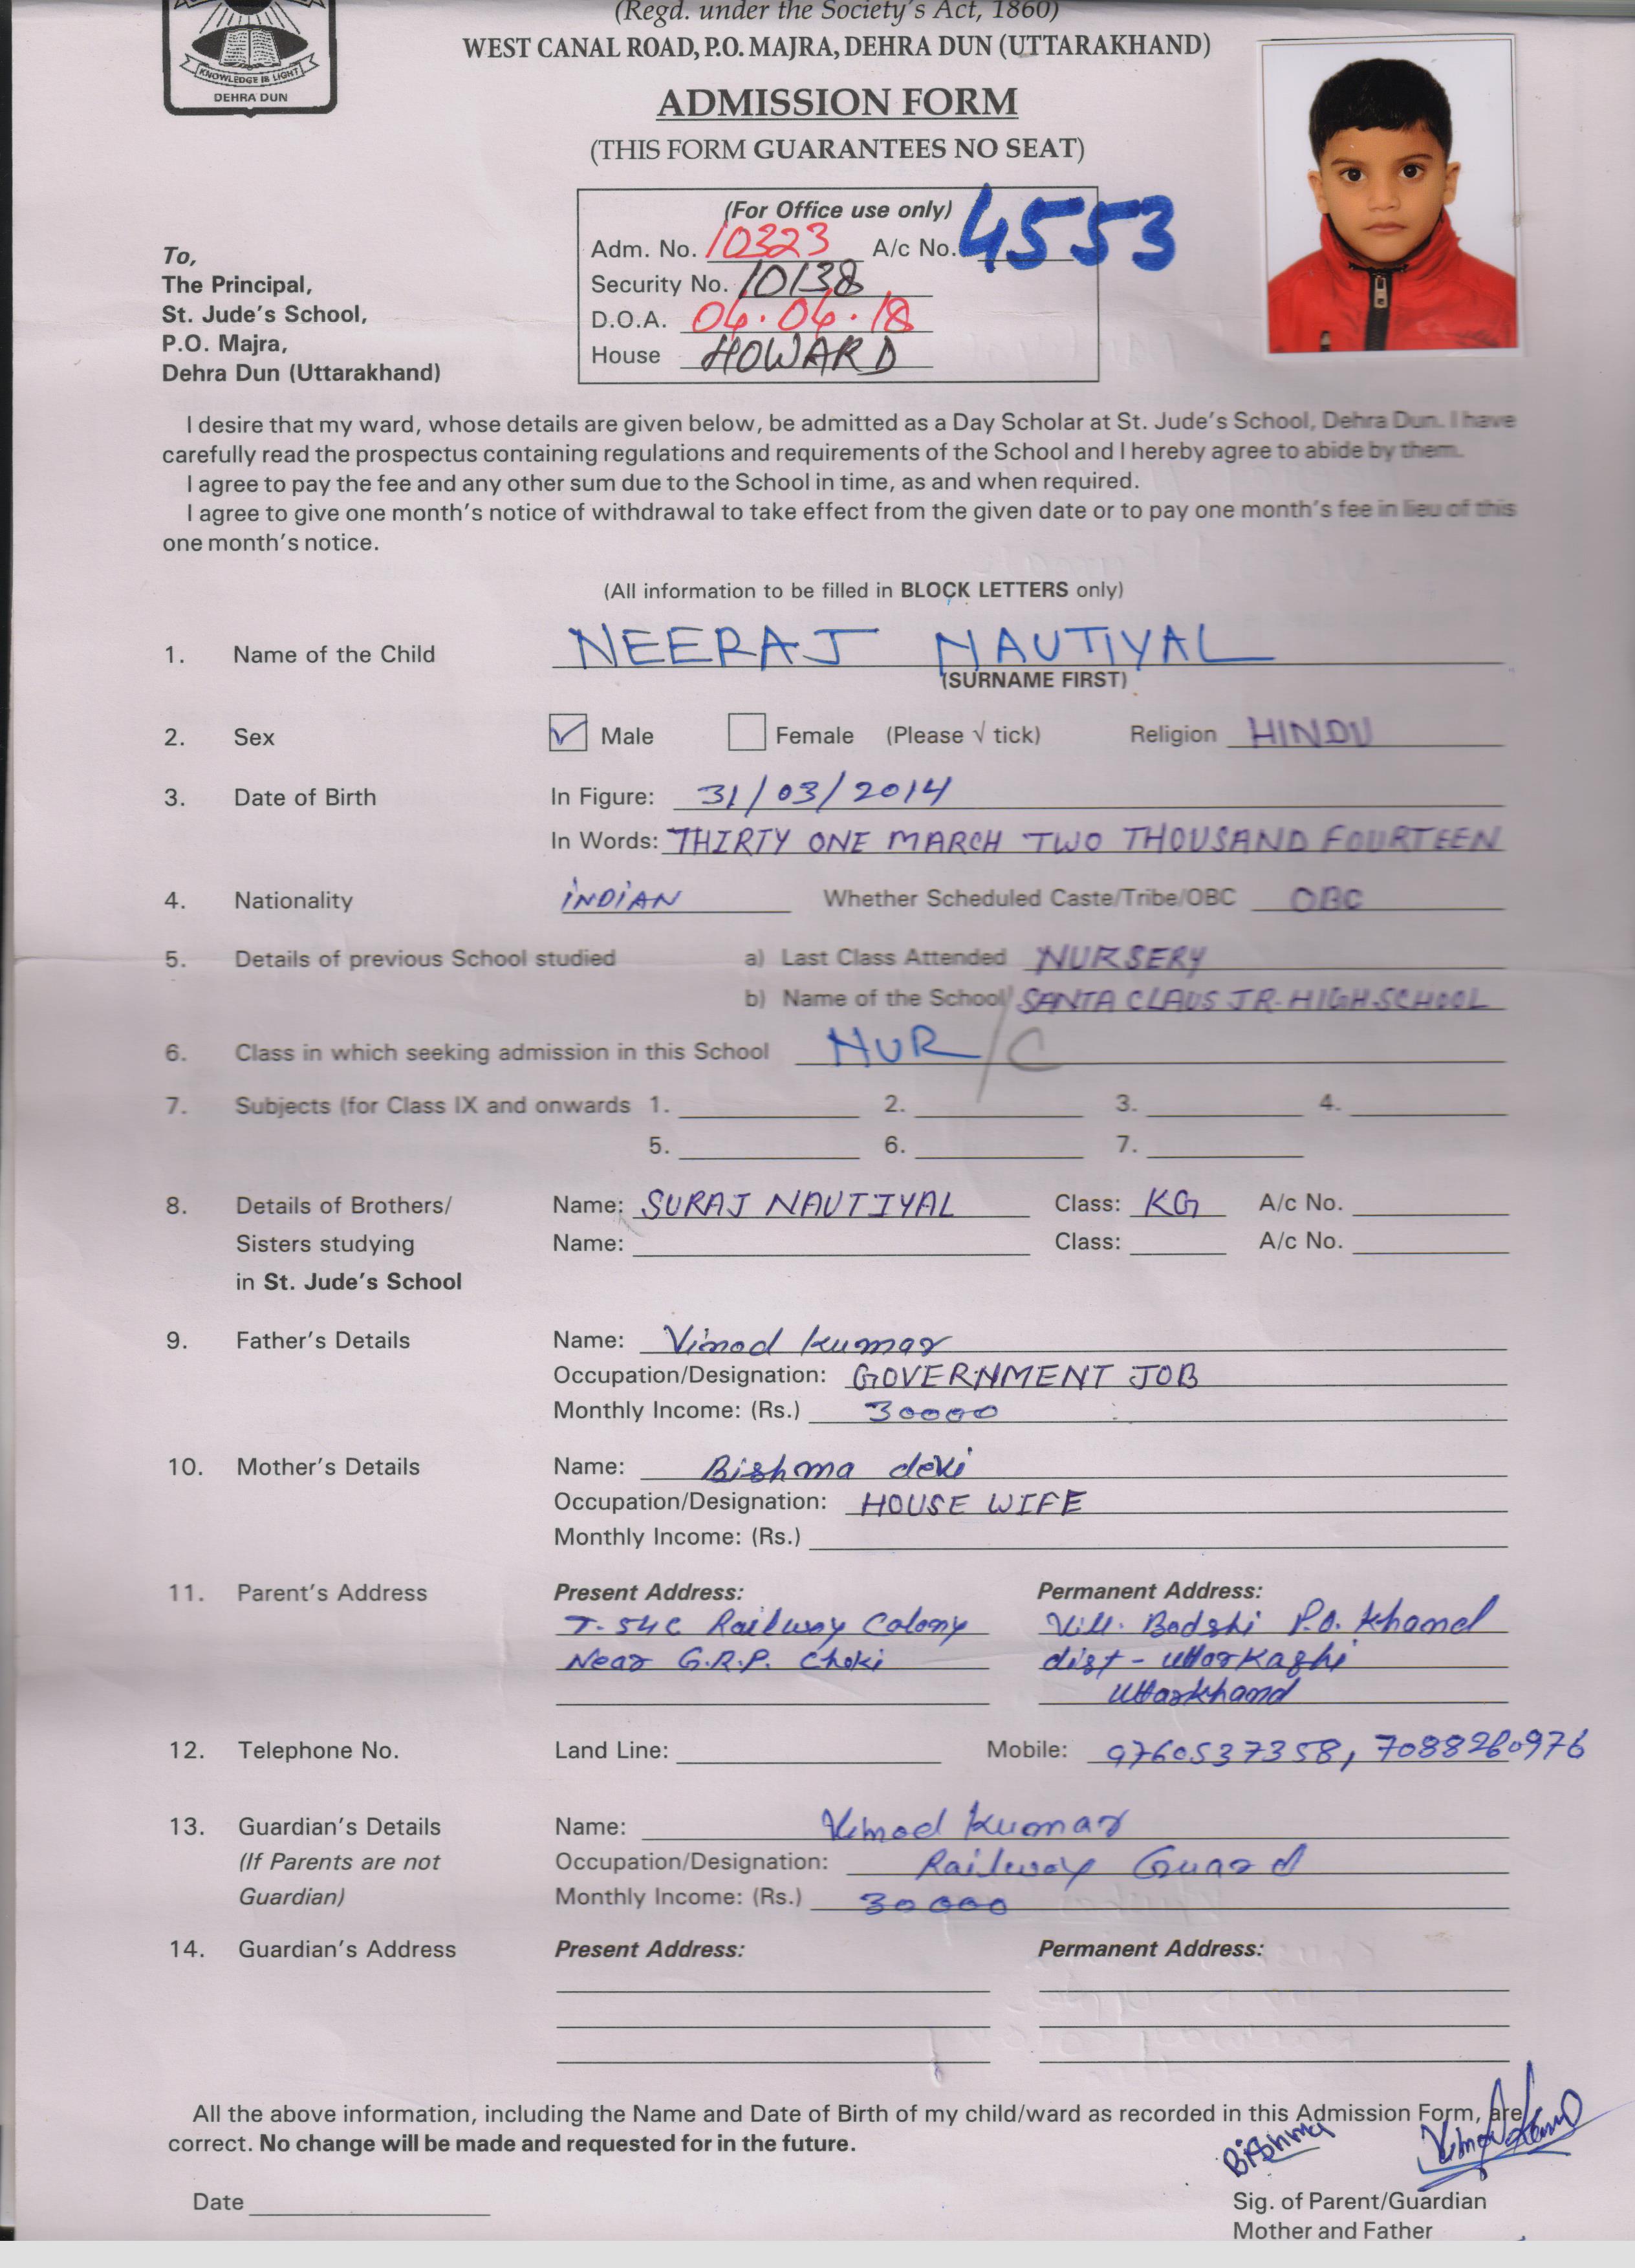 (Regd. under the Society's Act, 1860)
WEST CANAL ROAD, P.O. MAJRA, DEHRA DUN (UTTARAKHAND)
KNOWLEDGE IS LIGHT
DEHRA DUN
ADMISSION FORM
(THIS FORM GUARANTEES NO SEAT)
(For Office use only)
Adm. No. 10323 A/c No. 4553
Security No. 10138
D.O.A. 04.04.18
House HOWARD
To,
The Principal,
St. Jude's School,
P.O. Majra,
Dehra Dun (Uttarakhand)
I desire that my ward, whose details are given below, be admitted as a Day Scholar at St. Jude's School, Dehra Dun. I have
carefully read the prospectus containing regulations and requirements of the School and I hereby agree to abide by them.
I agree to pay the fee and any other sum due to the School in time, as and when required.
I agree to give one month's notice of withdrawal to take effect from the given date or to pay one month's fee in lieu of this
one month's notice.
(All information to be filled in BLOCK LETTERS only)
1. Name of the Child NEERAJ NAUTIYAL
(SURNAME FIRST)
2. Sex ✓ Male Female (Please √ tick) Religion HINDU
3. Date of Birth In Figure: 31/03/2014
In Words: THIRTY ONE MARCH TWO THOUSAND FOURTEEN
4. Nationality INDIAN Whether Scheduled Caste/Tribe/OBC OBC
5. Details of previous School studied a) Last Class Attended NURSERY
b) Name of the School SANTA CLAUS JR-HIGH SCHOOL
6. Class in which seeking admission in this School NUR/C
7. Subjects (for Class IX and onwards 1. 2. 3. 4.
5. 6. 7.
8. Details of Brothers/ Name: SURAJ NAUTIYAL Class: KG A/c No.
Sisters studying Name: Class: A/c No.
in St. Jude's School
9. Father's Details Name: Vinod kumar
Occupation/Designation: GOVERNMENT JOB
Monthly Income: (Rs.) 30000
10. Mother's Details Name: Bishma devi
Occupation/Designation: HOUSE WIFE
Monthly Income: (Rs.)
11. Parent's Address Present Address: Permanent Address:
T-54C Railway Colony Vill. Badshi P.O. khand
Near G.R.P. Choki dist - uttarkashi
uttarkhand
12. Telephone No. Land Line: Mobile: 9760537358, 7088260976
13. Guardian's Details Name: Vinod Kumar
(If Parents are not Occupation/Designation: Railway Guard
Guardian) Monthly Income: (Rs.) 30000
14. Guardian's Address Present Address: Permanent Address:
All the above information, including the Name and Date of Birth of my child/ward as recorded in this Admission Form, are
correct. No change will be made and requested for in the future.
Bishma
Date
Sig. of Parent/Guardian
Mother and Father